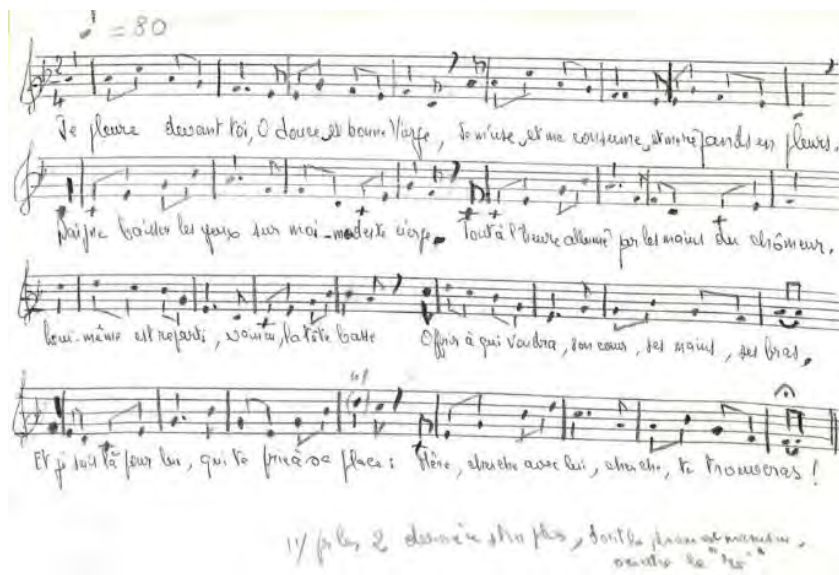 = 80
2
4
Je pleure devant toi, O douce et bonne Vierge, Je m'use, et me consume, et me répands en pleurs.
Daigne baisser les yeux sur moi - modeste cierge. Tout à l'heure allumé par les mains du chômeur.
Lui-même est reparti, la tête basse Offrir à qui voudra, son cœur, ses mains, ses bras,
Et je suis là pour lui, qui te prie à sa place : Mère, cherche avec lui, cherche, tu trouveras !
2